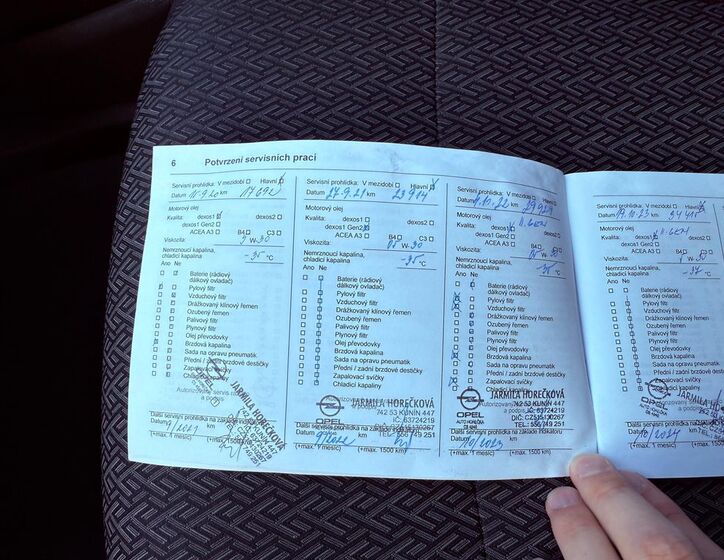 6 Potvrzení servisních prací
Servisní prohlídka: V mezidobí Hlavní
Datum 11.9.20 km 17692
Motorový olej
Kvalita: dexos1 dexos2
dexos1 Gen2
ACEA A3 B4 C3
Viskozita: W-30
Nemrznoucí kapalina,
chladicí kapalina -35 °C
Ano Ne
Baterie (rádiový
dálkový ovladač)
Pylový filtr
Vzduchový filtr
Drážkovaný klínový řemen
Ozubený řemen
Palivový filtr
Plynový filtr
Olej převodovky
Brzdová kapalina
Sada na opravu pneumatik
Přední / zadní brzdové destičky
Zapalovací svíčky
Chladicí kapaliny
JARMILA HOREČKOVÁ
742 53 KUNÍN 447
Další servisní prohlídka na základě indikátoru
Datum 9/2021
(+max. 1 měsíc) (+max. 1500 km)
Servisní prohlídka: V mezidobí Hlavní
Datum 27.9.21 km 23914
Motorový olej
Kvalita: dexos1 dexos2
dexos1 Gen2
ACEA A3 B4 C3
Viskozita: 0W-30
Nemrznoucí kapalina,
chladicí kapalina -35 °C
Ano Ne
Baterie (rádiový
dálkový ovladač)
Pylový filtr
Vzduchový filtr
Drážkovaný klínový řemen
Ozubený řemen
Palivový filtr
Plynový filtr
Olej převodovky
Brzdová kapalina
Sada na opravu pneumatik
Přední / zadní brzdové destičky
Zapalovací svíčky
Chladicí kapaliny
JARMILA HOREČKOVÁ
742 53 KUNÍN 447
IČ: 63724219
OPEL
TEL.: 556 749 251
Další servisní prohlídka na základě indikátoru
Datum 9/2022 km
(+max. 1 měsíc) (+max. 1500 km)
Servisní prohlídka: V mezidobí Hlavní
Datum 10.22 km
Motorový olej
Kvalita: dexos1 II.GEN
dexos1 Gen2
ACEA A3 B4 C3
Viskozita: 0W-30
Nemrznoucí kapalina,
chladicí kapalina -35 °C
Ano Ne
Baterie (rádiový
dálkový ovladač)
Pylový filtr
Vzduchový filtr
Drážkovaný klínový řemen
Ozubený řemen
Palivový filtr
Plynový filtr
Olej převodovky
Brzdová kapalina
Sada na opravu pneumatik
Přední / zadní brzdové destičky
Zapalovací svíčky
Chladicí kapaliny
JARMILA HOREČKOVÁ
742 53 KUNÍN 447
IČ: 63724219
OPEL
TEL.: 556 749 251
Další servisní prohlídka na základě indikátoru
Datum 10/2023 km
(+max. 1 měsíc) (+max. 1500 km)
Servisní prohlídka: V mezidobí Hlavní
Datum 19.10.23 km 34415
Motorový olej
Kvalita: dexos1 II.GEN
dexos1 Gen2
ACEA A3 B4 C3
Viskozita: 0W-30
Nemrznoucí kapalina,
chladicí kapalina -37 °C
Ano Ne
Baterie (rádiový
dálkový ovladač)
Pylový filtr
Vzduchový filtr
Drážkovaný klínový řemen
Ozubený řemen
Palivový filtr
Plynový filtr
Olej převodovky
Brzdová kapalina
Sada na opravu pneumatik
Přední / zadní brzdové destičky
Zapalovací svíčky
Chladicí kapaliny
JARMILA
742 53
OPEL
Další servisní prohlídka na základě
Datum 10/2024 km
(+max. 1 měsíc) (+max. 1500 km)